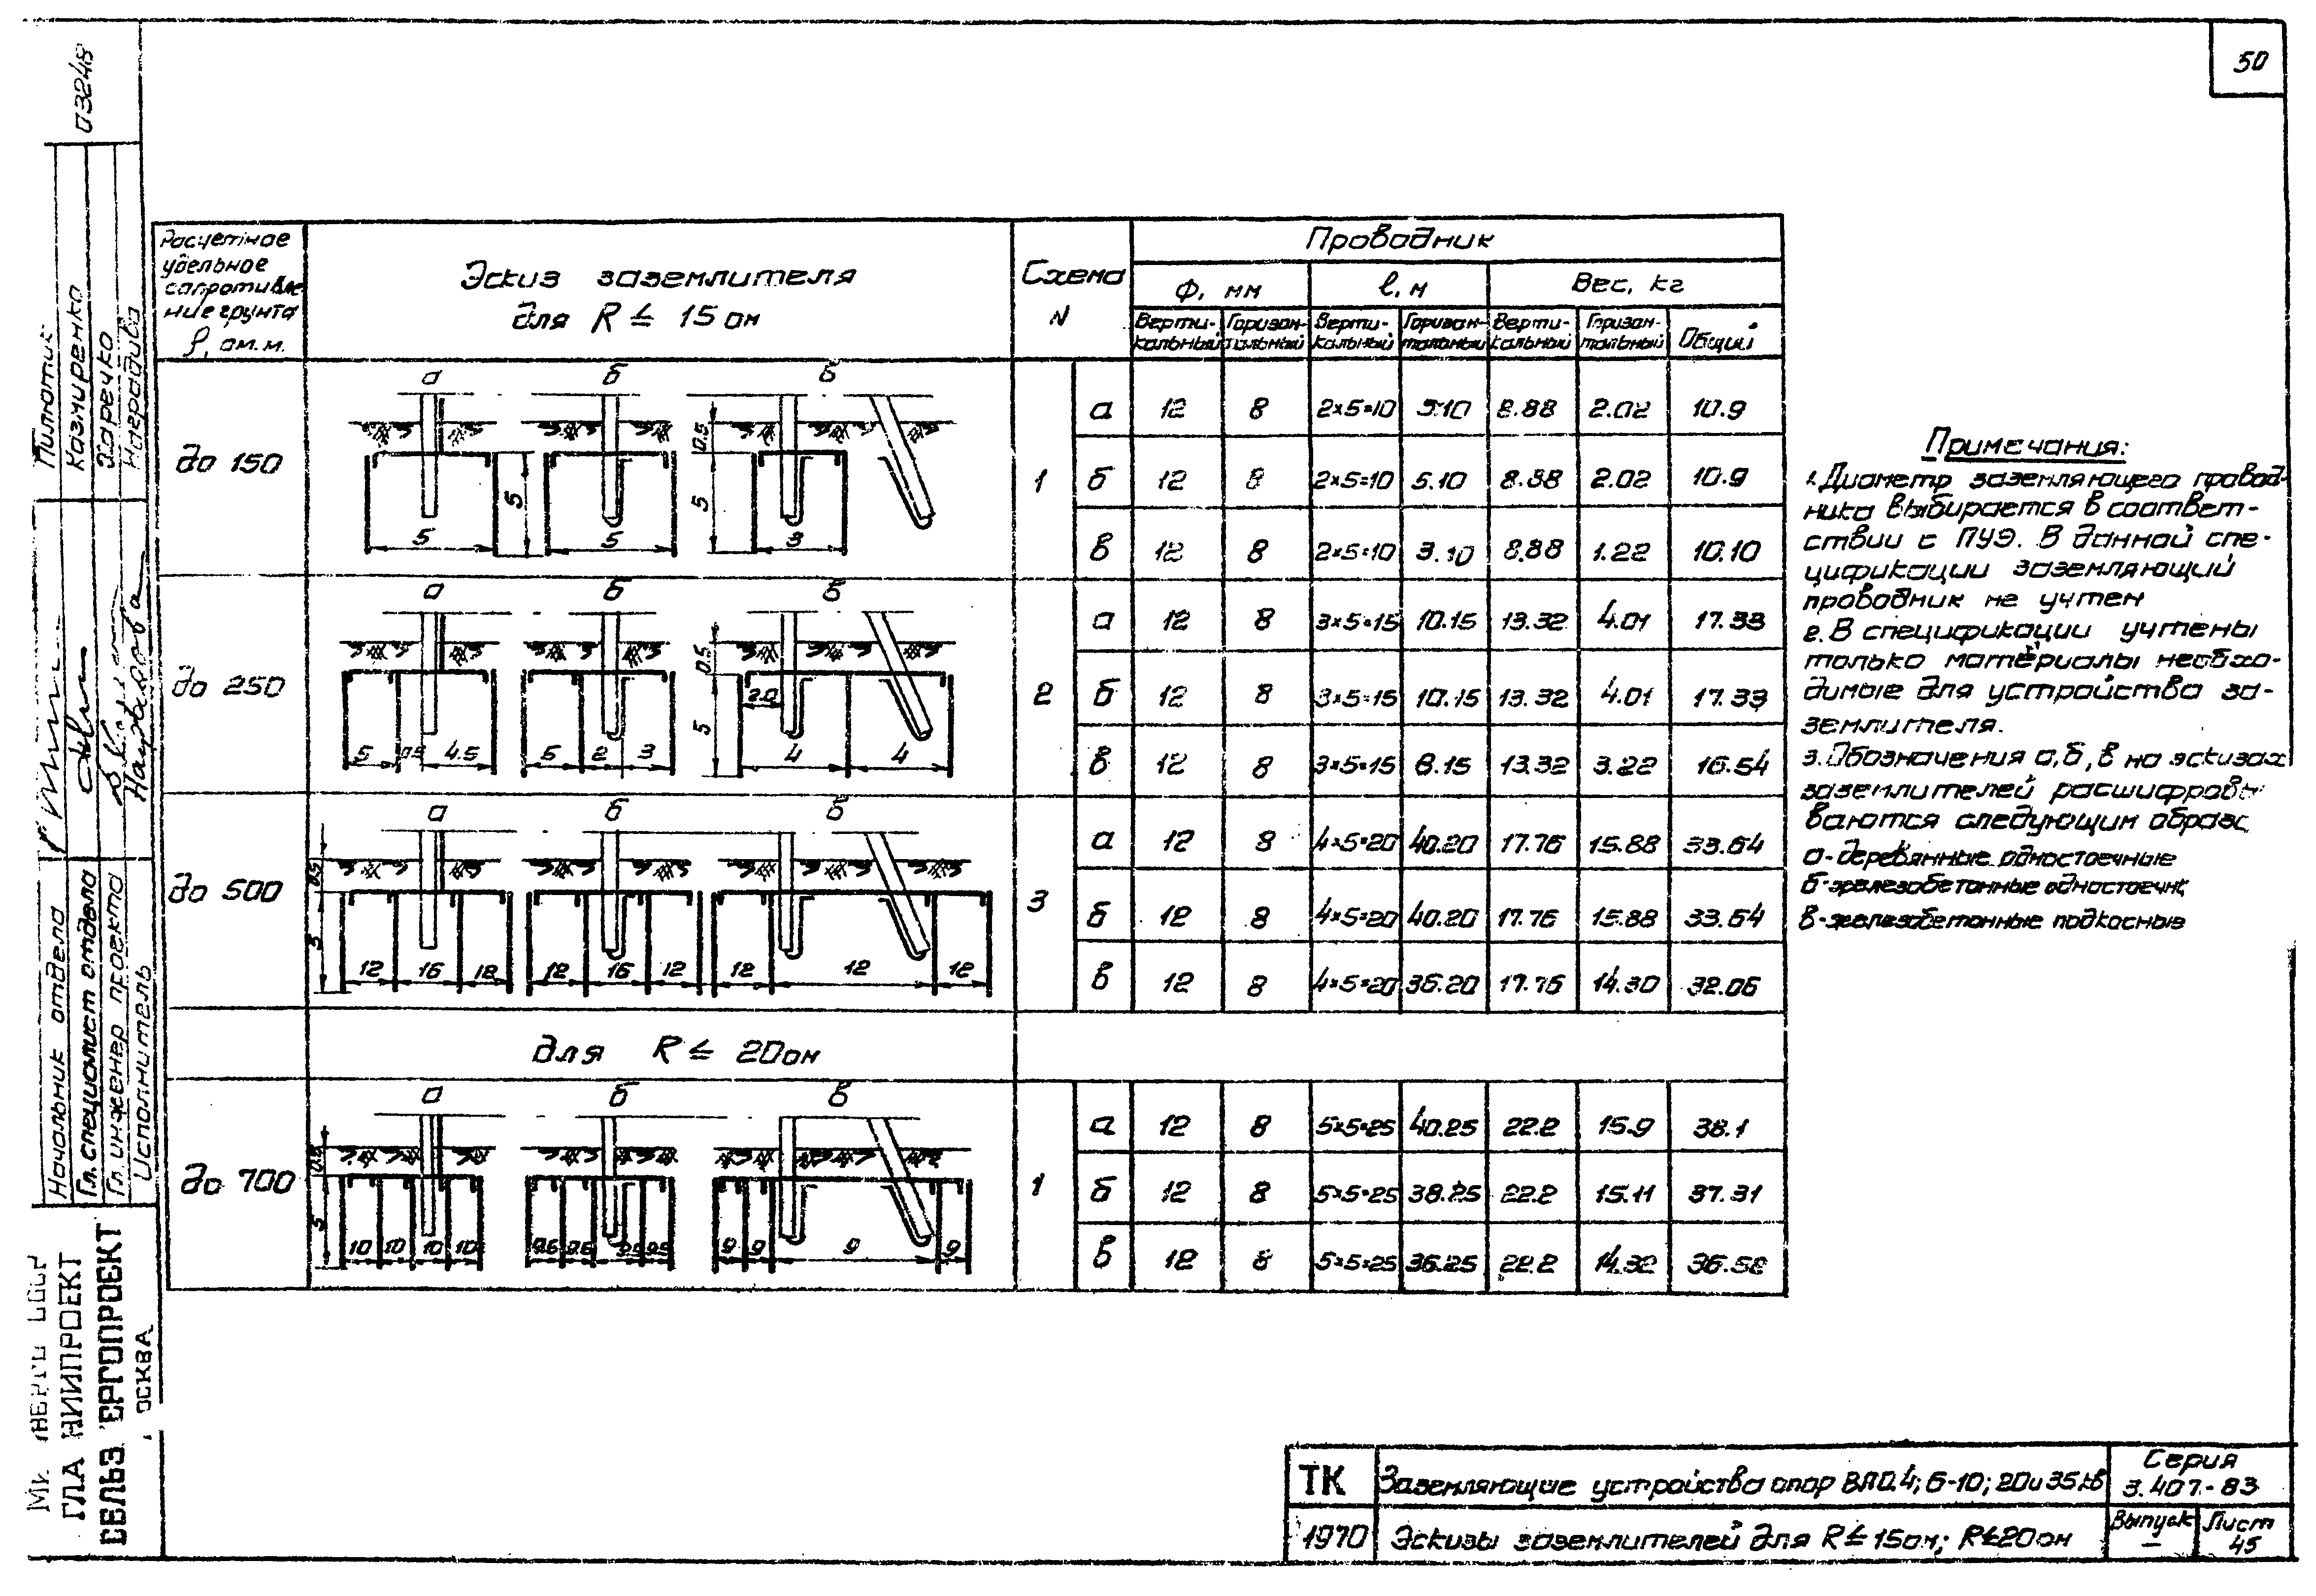 50
03248
Пилютик
Казмиренко
Харечко
Наградива
Начальник отдела
Гл. специалист отдела
Гл. инженер проекта
Исполнитель
Расчетное
удельное
сапротивле
ние грунта
ρ, ом.м.
Эскиз заземлителя
для R ≤ 15 ом
Схема
N
Проводник
Ф, мм
l, м
Вес, кг
Верти-
кальный
Горизон-
тальный
Верти-
кальный
Горизон-
тальный
Верти-
кальный
Горизон-
тальный
Общий
до 150
а б в
0.5
5 5 5 5 3
1
а 12 8 2×5=10 5.10 8.88 2.02 10.9
б 12 8 2×5=10 5.10 8.88 2.02 10.9
в 12 8 2×5=10 3.10 8.88 1.22 10.10
до 250
а б в
0.5
2.0
5
5 0.5 4.5 5 2 3 4 4
2
а 12 8 3×5=15 10.15 13.32 4.01 17.33
б 12 8 3×5=15 10.15 13.32 4.01 17.33
в 12 8 3×5=15 8.15 13.32 3.22 16.54
до 500
а б в
0.5
5
12 16 12 12 16 12 12 12 12
3
а 12 8 4×5=20 40.20 17.76 15.88 33.64
б 12 8 4×5=20 40.20 17.76 15.88 33.64
в 12 8 4×5=20 36.20 17.76 14.30 32.06
для R ≤ 20 ом
до 700
а б в
0.5
5
10 10 10 10 9.5 9.5 9.5 9.5 9 9 9 9
1
а 12 8 5×5=25 40.25 22.2 15.9 38.1
б 12 8 5×5=25 38.25 22.2 15.11 37.31
в 12 8 5×5=25 36.25 22.2 14.32 36.52
Примечания:
1. Диаметр заземляющего провод-
ника выбирается в соответ-
ствии с ПУЭ. В данной спе-
цификации заземляющий
проводник не учтен
2. В спецификации учтены
только материалы необхо-
димые для устройства за-
землителя.
3. Обозначения а, б, в на эскизах
заземлителей расшифровы
ваются следующим образс
а-деревянные одностоечные
б-железобетонные одностоечн
в-железобетонные подкосные
ГЛА НИИПРОЕКТ
СЕЛЬЭ ЕРГОПРОЕКТ
ОСКВА
ТК
Заземляющие устройства опор ВЛ0.4; 6-10; 20 и 35 кв
Серия
3.407-83
1970
Эскизы заземлителей для R ≤ 15 ом; R ≤ 20 ом
Выпуск
—
Лист
45